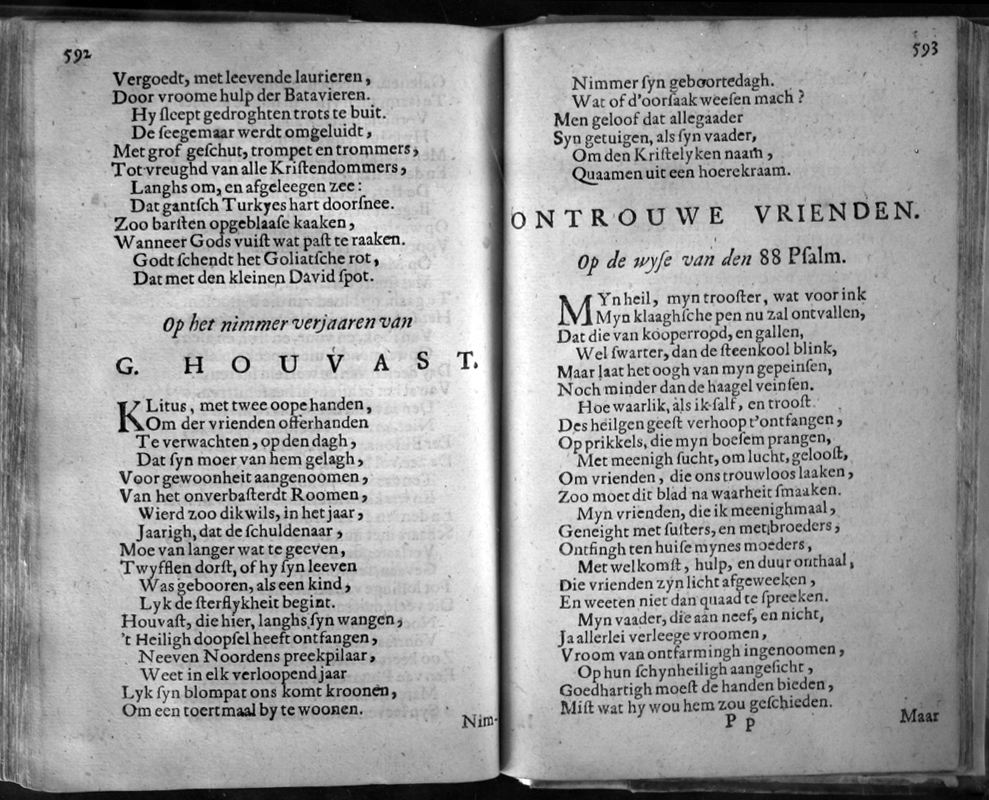 592
Vergoedt, met leevende laurieren,
Door vroome hulp der Batavieren.
Hy ſleept gedroghten trots te buit.
De ſeegemaar werdt omgeluidt,
Met grof geſchut, trompet en trommers,
Tot vreughd van alle Kriſtendommers,
Langhs om, en afgeleegen zee:
Dat gantſch Turkyes hart doorſnee.
Zoo barſten opgeblaaſe kaaken,
Wanneer Gods vuiſt wat paſt te raaken.
Godt ſchendt het Goliatſche rot,
Dat met den kleinen David ſpot.
Op het nimmer verjaaren van
G. HOUVAST.
KLitus, met twee oope handen,
Om der vrienden offerhanden
Te verwachten, op den dagh,
Dat ſyn moer van hem gelagh,
Voor gewoonheit aangenoomen,
Van het onverbaſterdt Roomen,
Wierd zoo dikwils, in het jaar,
Jaarigh, dat de ſchuldenaar,
Moe van langer wat te geeven,
Twyfflen dorſt, of hy ſyn leeven
Was gebooren, als een kind,
Lyk de ſterflykheit begint.
Houvaſt, die hier, langhs ſyn wangen,
't Heiligh doopſel heeft ontfangen,
Neeven Noordens preekpilaar,
Weet in elk verloopend jaar
Lyk ſyn blompat ons komt kroonen,
Om een toertmaal by te woonen.
Nim-
593
Nimmer ſyn geboortedagh.
Wat of d'oorſaak weeſen mach?
Men geloof dat allegaader
Syn getuigen, als ſyn vaader,
Om den Kriſtelyken naam,
Quaamen uit een hoerekraam.
ONTROUWE VRIENDEN.
Op de wyſe van den 88 Pſalm.
MYn heil, myn trooſter, wat voor ink
Myn klaaghſche pen nu zal ontvallen,
Dat die van kooperrood, en gallen,
Wel ſwarter, dan de ſteenkool blink,
Maar laat het oogh van myn gepeinſen,
Noch minder dan de haagel veinſen.
Hoe waarlik, als ik ſalf, en trooſt
Des heilgen geeſt verhoop t'ontfangen,
Op prikkels, die myn boeſem prangen,
Met meenigh ſucht, om lucht, gelooſt,
Om vrienden, die ons trouwloos laaken,
Zoo moet dit blad na waarheit ſmaaken.
Myn vrienden, die ik meenighmaal,
Geneight met ſuſters, en met broeders,
Ontfingh ten huiſe mynes moeders,
Met welkomſt, hulp, en duur onthaal,
Die vrienden zyn licht afgeweeken,
En weeten niet dan quaad te ſpreeken.
Myn vaader, die aan neef, en nicht,
Ja allerlei verleege vroomen,
Vroom van ontfarmingh ingenoomen,
Op hun ſchynheiligh aangeſicht,
Goedhartigh moeſt de handen bieden,
Miſt wat hy wou hem zou geſchieden.
P p
Maar